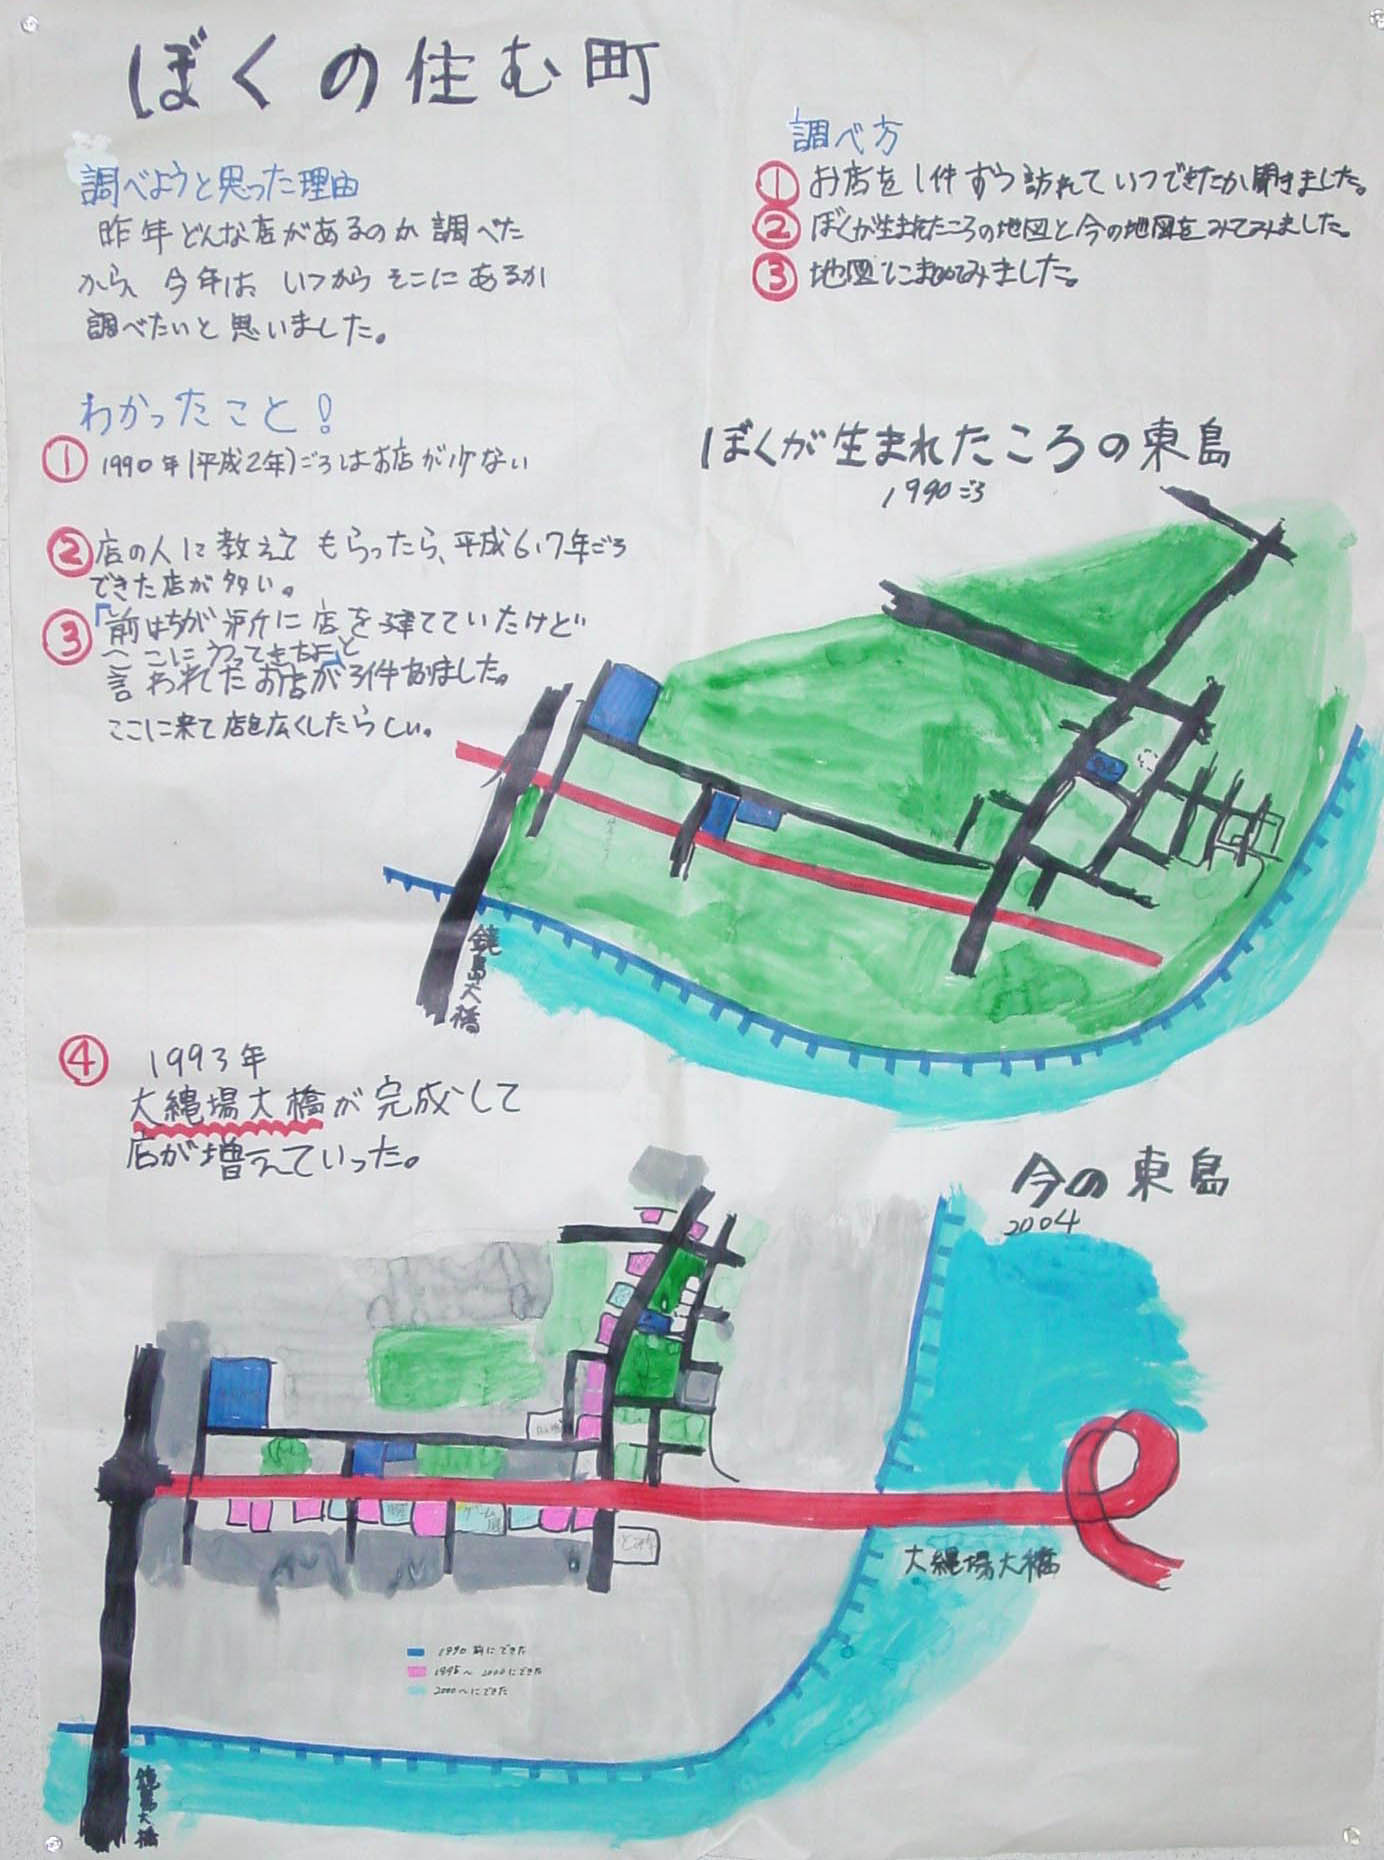 ぼくの住む町
調べようと思った理由
昨年どんな店があるのか調べた
から、今年は、いつからそこにあるか
調べたいと思いました。
調べ方
① お店を1件ずつ訪れていつできたか聞きました。
② ぼくが生まれたころの地図と今の地図をみてみました。
③ 地図にまとめてみました。
わかったこと!
① 1990年(平成2年)ごろはお店が少ない
② 店の人に教えてもらったら、平成6.7年ごろ
できた店が多い。
③ 「前はちがう所に店を建てていたけど
ここにうつってきたよ」と
言われたお店が3件ありました。
ここに来て店を広くしたらしい。
ぼくが生まれたころの東島
1990ごろ
鏡島大橋
④ 1993年
大縄場大橋が完成して
店が増えていった。
今の東島
2004
ゲーム屋
大縄場大橋
1990前にできた
1995〜2000にできた
2000〜にできた
鏡島大橋